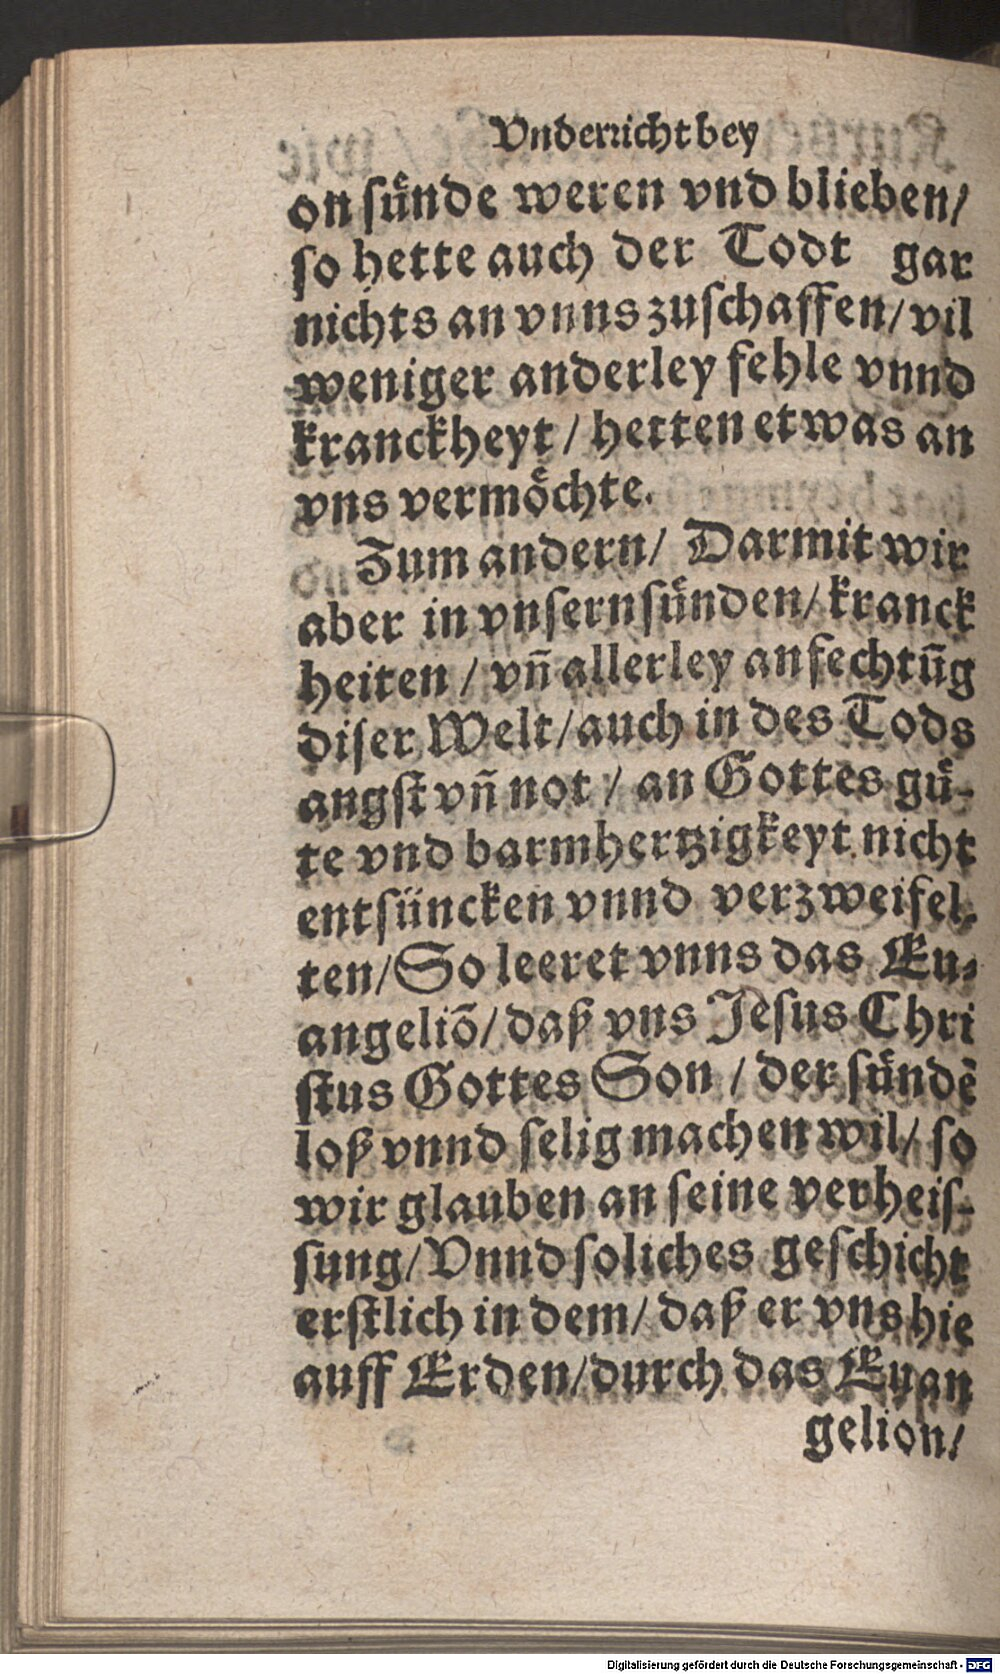 Vnderricht bey
on sünde weren vnd blieben/
so hette auch der Todt gar
nichts an vnns zuschaffen/ vil
weniger anderley fehle vnnd
kranckheyt / hetten etwas an
vns vermöchte.
Zum andern/ Darmit wir
aber in vnsern sünden/ kranck
heiten / vñ allerley anfechtũg
diser Welt/ auch in des Tods
angst vñ not / an Gottes gü-
te vnd barmhertzigkeyt nicht
entsüncken vnnd verzweifel-
ten/ So leeret vnns das Eu-
angeliõ/ daß vns Jesus Chri
stus Gottes Son / der sündẽ
loß vnnd selig machen wil/ so
wir glauben an seine verheis-
sung/ Vnnd soliches geschicht
erstlich in dem/ daß er vns hie
auff Erden/ durch das Euan
gelion/
Digitalisierung gefördert durch die Deutsche Forschungsgemeinschaft - DFG